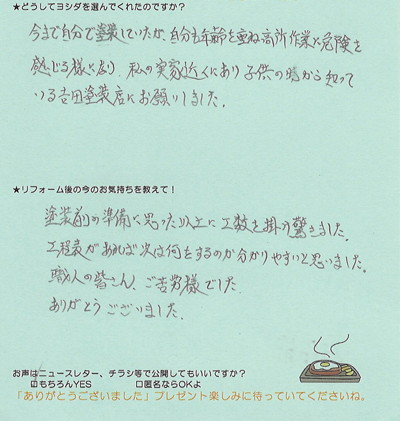 ★どうしてヨシダを選んでくれたのですか？
今まで自分で塗装していたが、自分も年齢を重ね高所作業に危険を
感じる様になり、私の実家近くにあり子供の時から知って
いる吉田塗装店にお願いしました。
★リフォーム後の今のお気持ちを教えて！
塗装前の準備に思った以上に工数を掛け驚きました。
工程表があれば次は何をするのか分かりやすいと思いました。
職人の皆さん、ご苦労様でした
ありがとうございました。
お声はニュースレター、チラシ等で公開してもいいですか？
□もちろんYES □匿名ならOKよ
「ありがとうございました」プレゼント楽しみに待っていてくださいね。